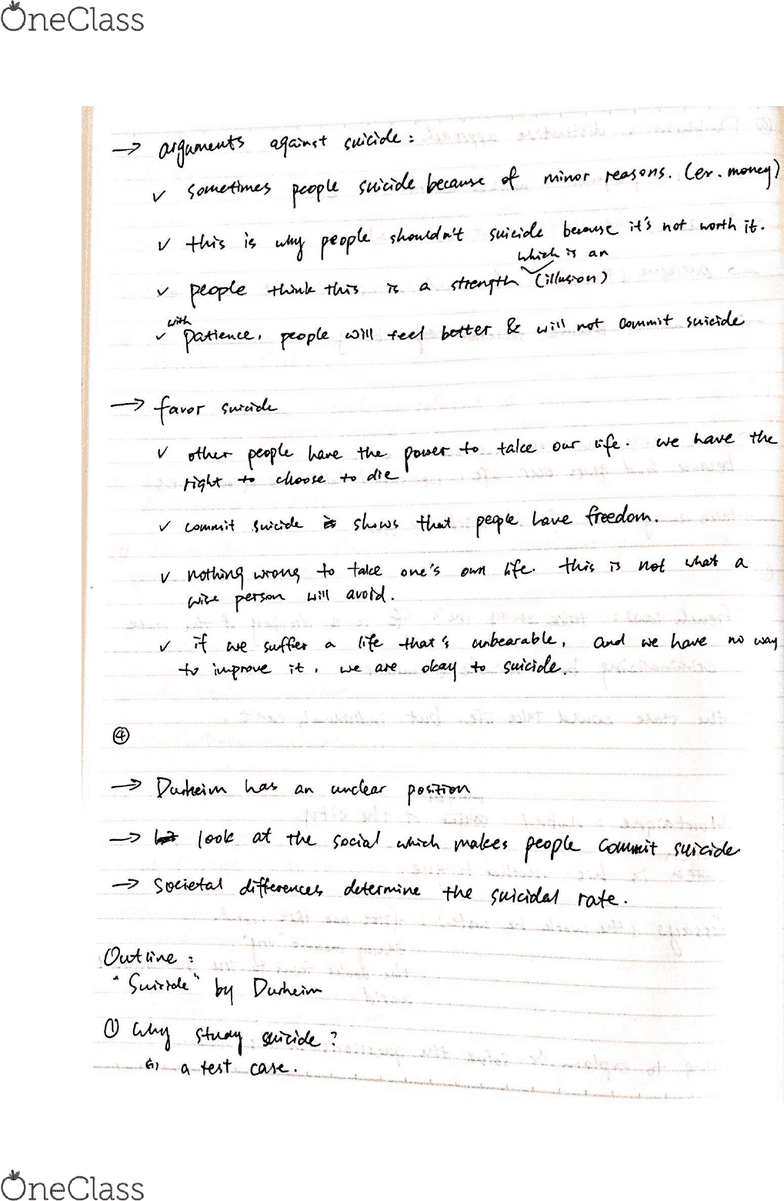 OneClass
→ arguments against suicide:
✓ sometimes people suicide because of minor reasons. (ex. money)
✓ this is why people shouldn't suicide because it's not worth it.
which is an
✓ people think this is a strength (illusion)
with
✓ patience, people will feel better & will not commit suicide
→ favor suicide
✓ other people have the power to take our life. we have the
right to choose to die
✓ commit suicide is shows that people have freedom.
✓ nothing wrong to take one's own life. this is not what a
wise person will avoid.
✓ if we suffer a life that's unbearable, and we have no way
to improve it, we are okay to suicide.
④
→ Durheim has an unclear position
→ look at the social which makes people commit suicide
→ societal differences determine the suicidal rate.
Outline:
"Suicide" by Durheim
① Why study suicide?
(i) a test case.
OneClass